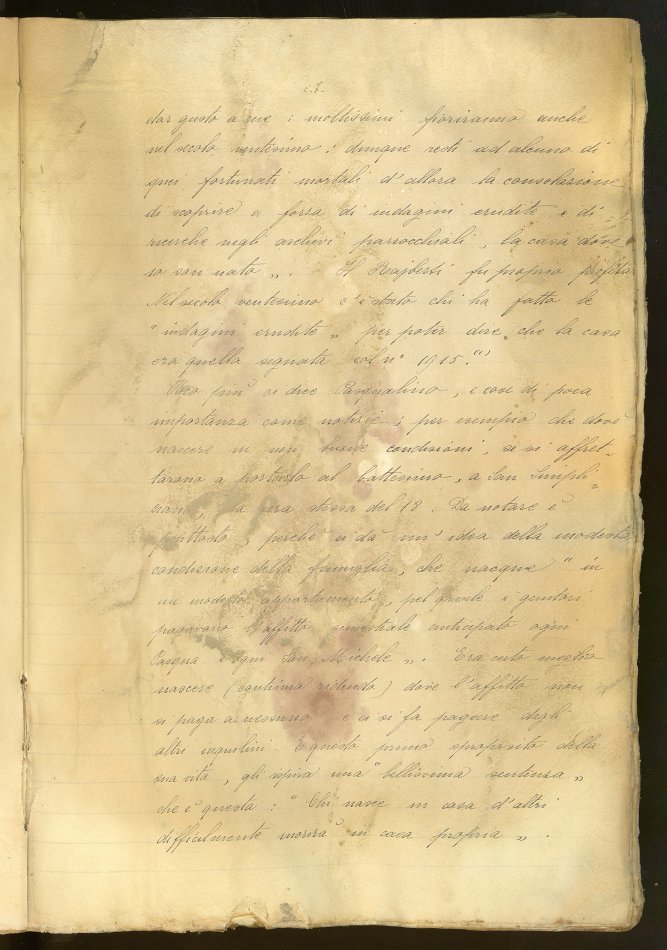 dar gusto a me : moltissimi fioriranno anche
nel secolo ventesimo : dunque resti ad alcuno di
quei fortunati mortali d'allora la consolazione
di scoprire a forza di indagini erudite e di
ricerche negli archivi parrocchiali, la casa dove
io son nato „. Il Rajberti fu proprio profeta
Nel secolo ventesimo c'è stato chi ha fatto le
" indagini erudite „ per poter dire che la casa
era quella segnata col n° 1915. (1)
Poco più ci dice Pasqualino, e cose di poca
importanza come notizie ; per esempio che dové
nascere in non buone condizioni, se si affret-
tarono a portarlo al battesimo, a San Simpli-
ciano, la sera stessa del 18. Da notare è
piuttosto, perchè ci dà un' idea della modesta
condizione della famiglia, che nacque " in
un modesto appartamento, pel quale i genitori
pagavano l'affitto semestrale anticipato ogni
Pasqua e ogni San Michele „. Era certo meglio
nascere (continua ridendo) dove l'affitto non
si paga a nessuno e ci si fa pagare dagli
altri inquilini. E questo primo sproposito della
sua vita, gli ispira una " bellissima sentenza „
che è questa : " Chi nasce in casa d'altri
difficilmente morirà in casa propria „ .